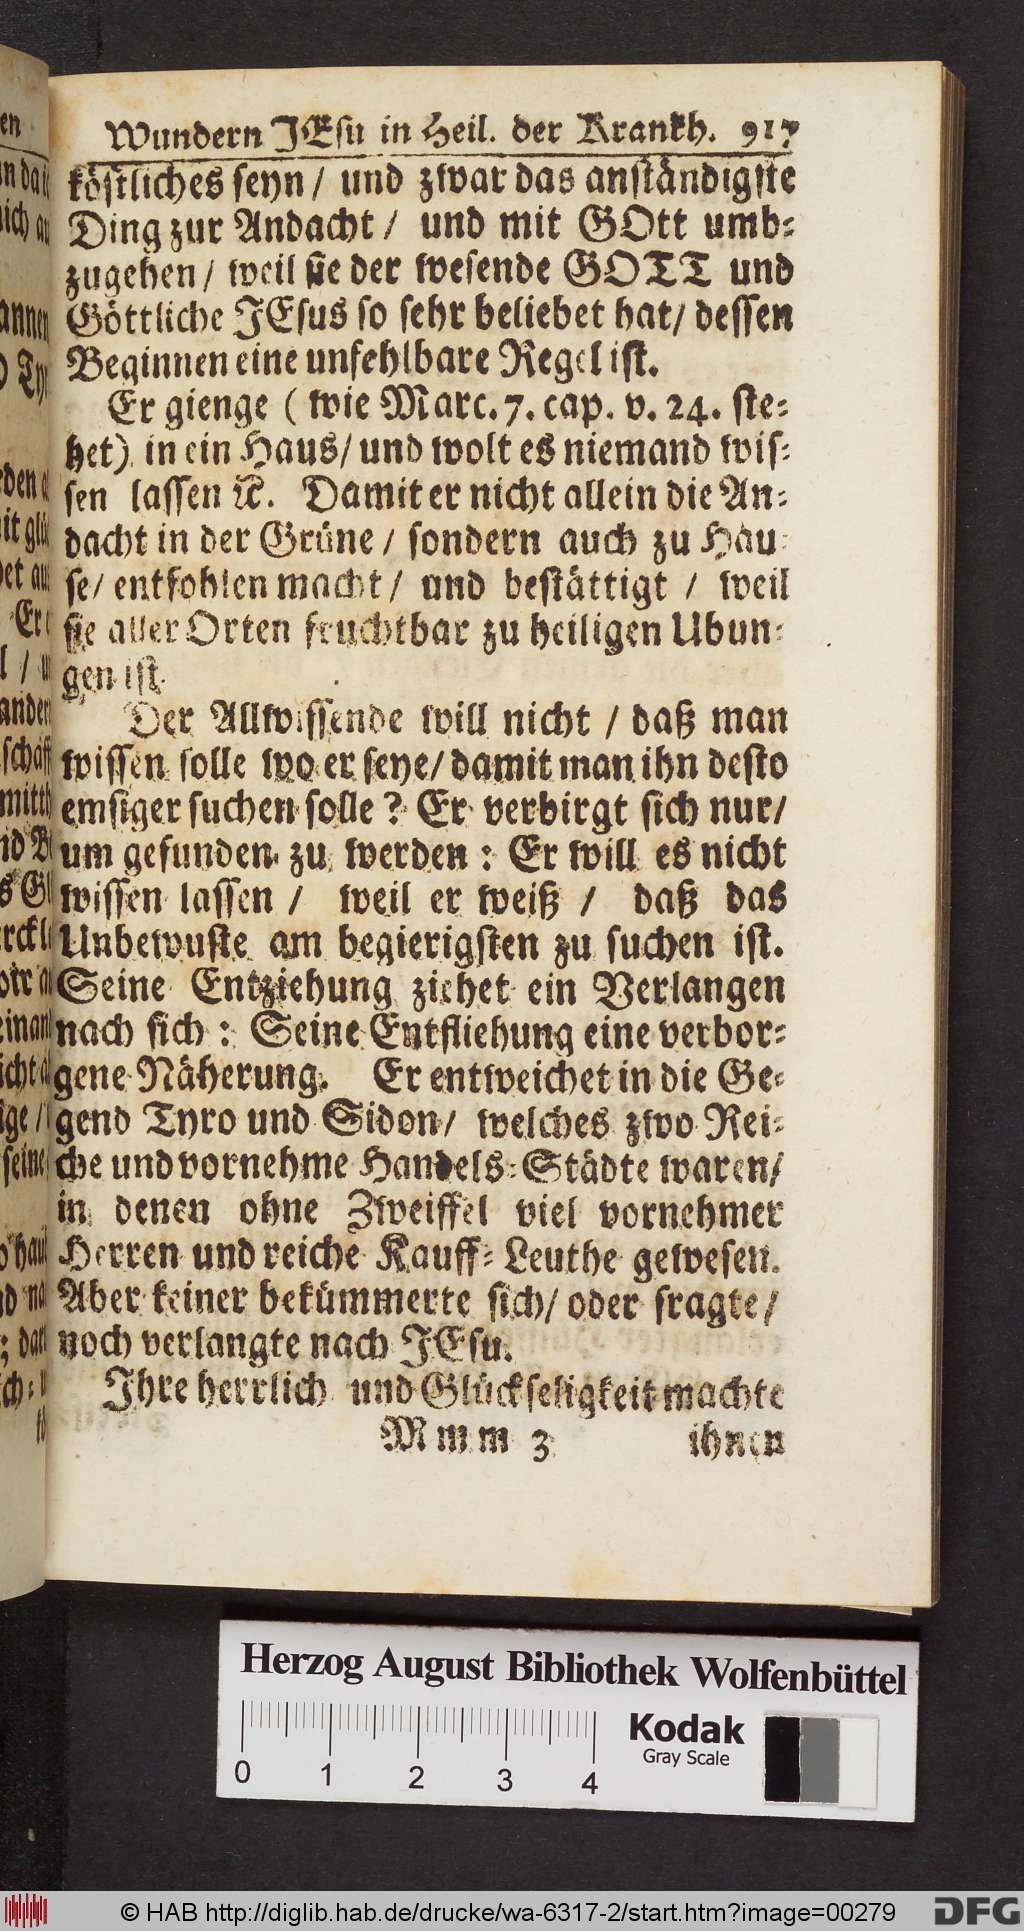 Wundern JEsu in Heil. der Krankh. 917
köstliches seyn / und zwar das anständigste
Ding zur Andacht / und mit GOtt umb-
zugehen / weil sie der wesende GOTT und
Göttliche JEsus so sehr beliebet hat / dessen
Beginnen eine unfehlbare Regel ist.
Er gienge ( wie Marc. 7. cap. v. 24. ste-
het) in ein Haus / und wolt es niemand wis-
sen lassen ꝛc. Damit er nicht allein die An-
dacht in der Grüne / sondern auch zu Hau-
se / entfohlen macht / und bestättigt / weil
sie aller Orten fruchtbar zu heiligen Ubun-
gen ist.
Der Allwissende will nicht / daß man
wissen solle wo er seye / damit man ihn desto
emsiger suchen solle ? Er verbirgt sich nur /
um gefunden zu werden : Er will es nicht
wissen lassen / weil er weiß / daß das
Unbewuste am begierigsten zu suchen ist.
Seine Entziehung ziehet ein Verlangen
nach sich : Seine Entfliehung eine verbor-
gene Näherung. Er entweichet in die Ge-
gend Tyro und Sidon / welches zwo Rei-
che und vornehme Handels-Städte waren /
in denen ohne Zweiffel viel vornehmer
Herren und reiche Kauff-Leuthe gewesen.
Aber keiner bekümmerte sich / oder fragte /
noch verlangte nach JEsu.
Ihre herrlich und Glückseligkeit machte
Mmm 3 ihnen
Herzog August Bibliothek Wolfenbüttel
Kodak
Gray Scale
0 1 2 3 4
© HAB http://diglib.hab.de/drucke/wa-6317-2/start.htm?image=00279
DFG